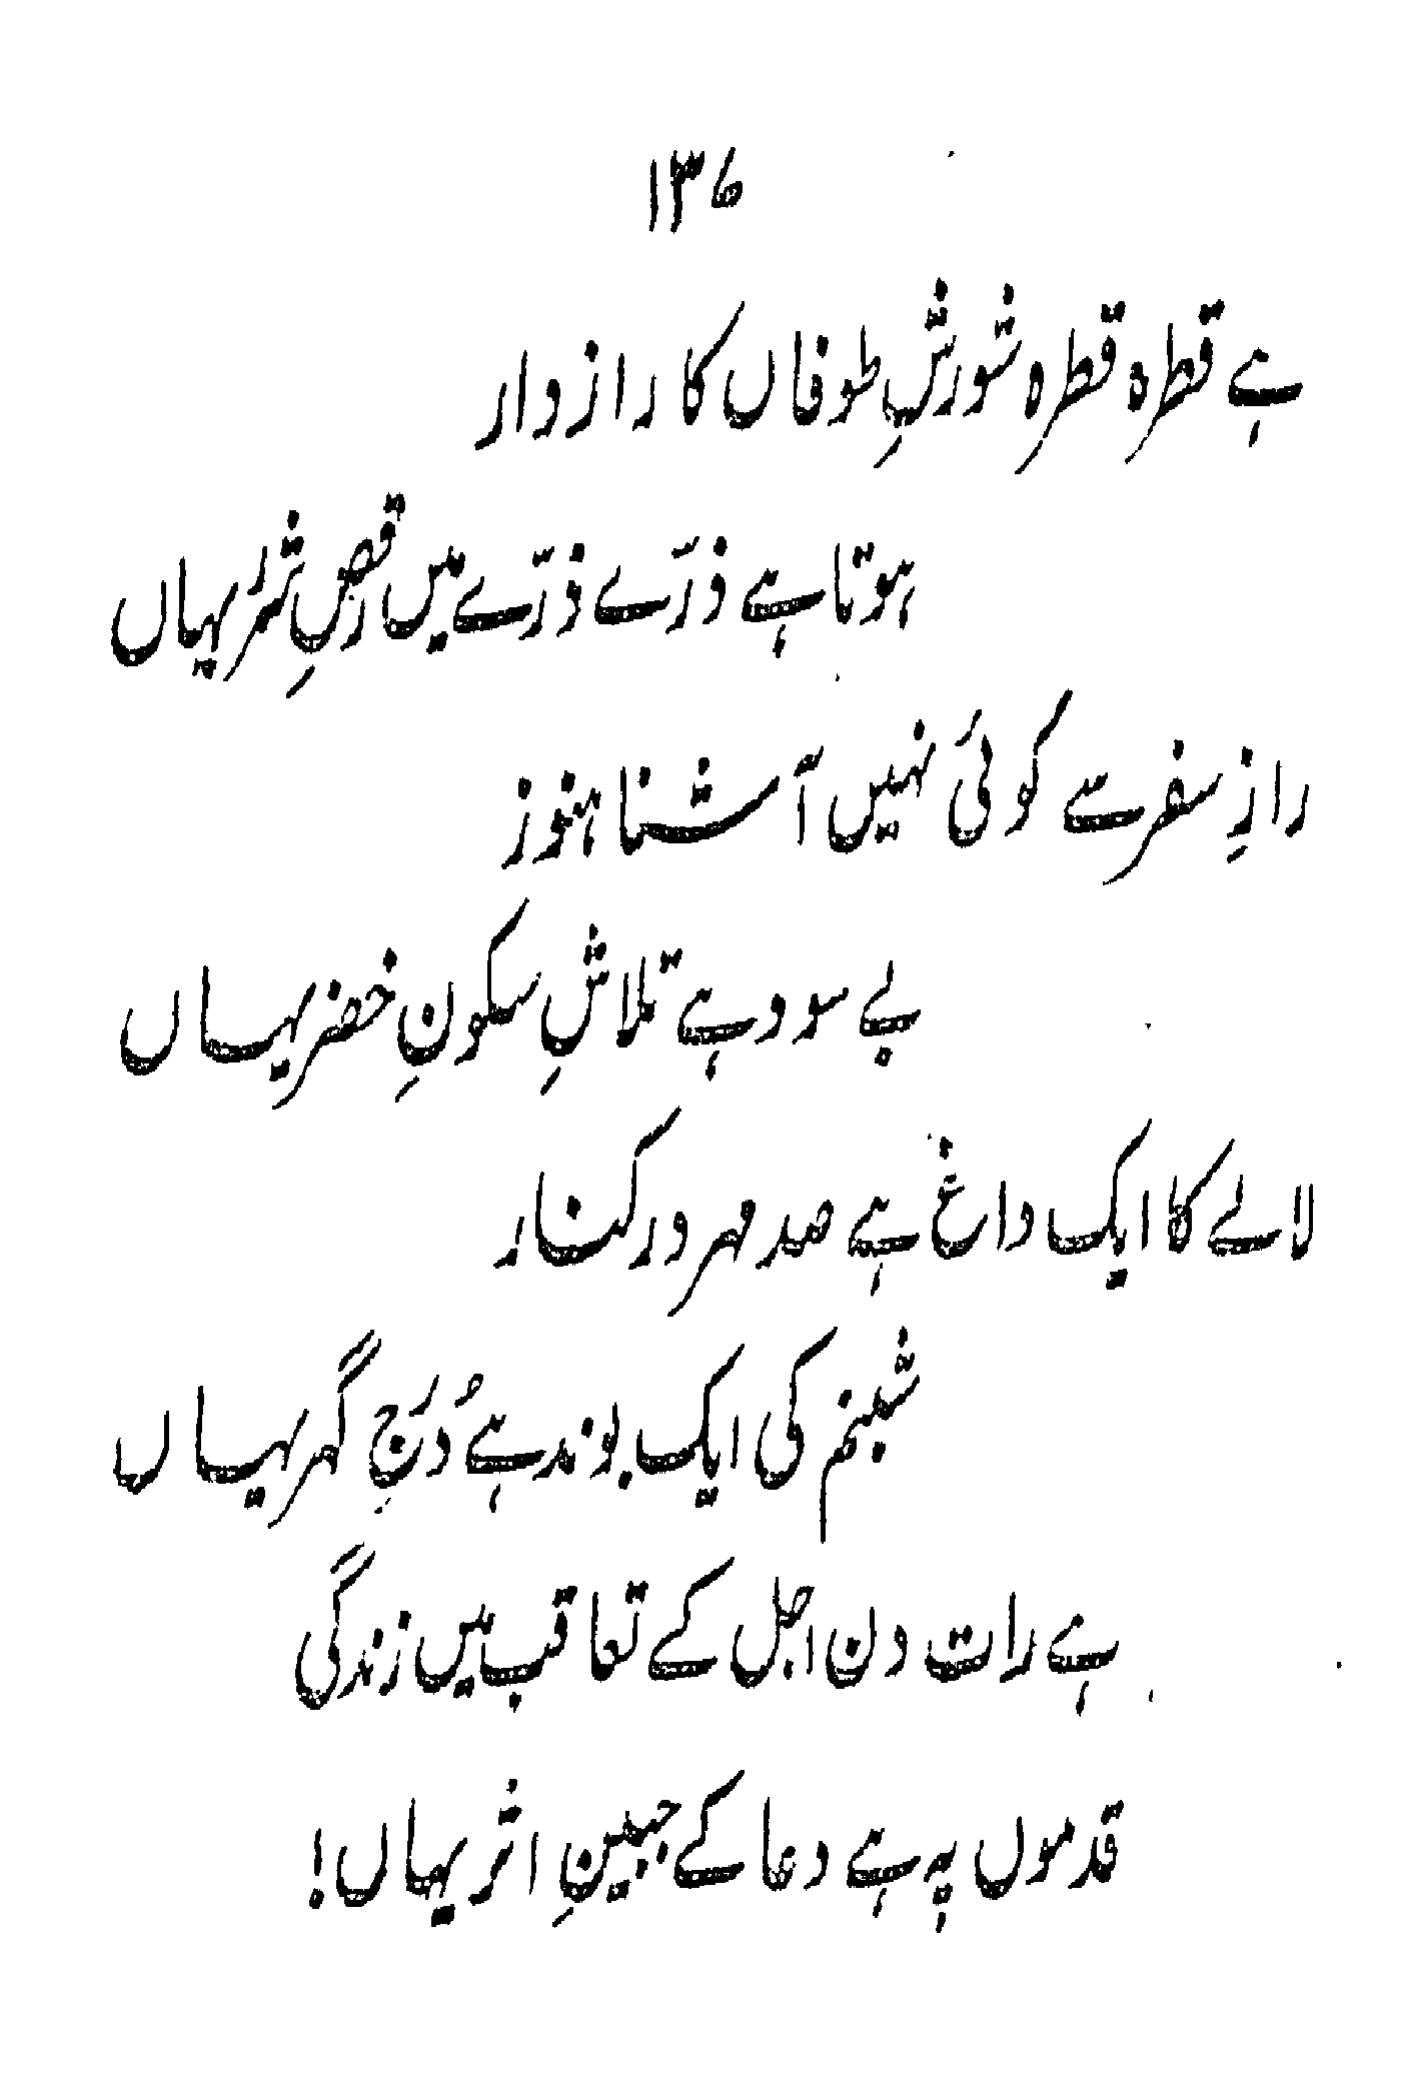 ۱۳۶
ہے قطرہ قطرہ شورشِ طوفاں کا رازدار
ہوتا ہے ذرّے ذرّے میں رقصِ شرر یہاں
رازِ سفر سے کوئی نہیں آشنا ہنوز
بے سود ہے تلاشِ سکونِ خضر یہاں
لالے کا ایک داغ ہے صد مہر در کنار
شبنم کی ایک بوند ہے دُرَجِ گہر یہاں
ہے رات دن اجل کے تعاقب میں زندگی
قدموں پہ ہے دعا کے جبینِ اثر یہاں!